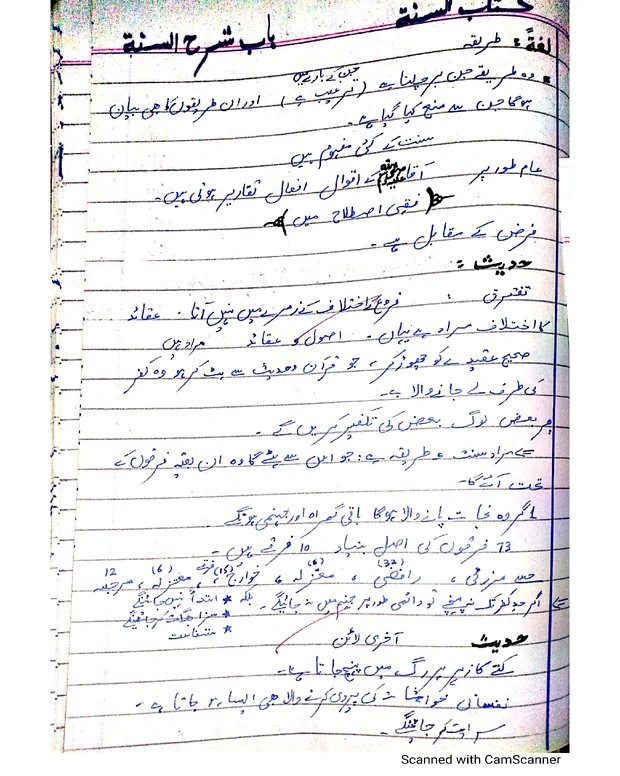 کتاب السنة
باب شرح السنة
لغةً: طریقہ
وہ طریقے جن پر چلنا ہے (ترغیب ہے) اور ان طریقوں کا بھی بیان
جن کے بارے میں
ہوگا جن سے منع کیا گیا ہے۔
سنت کے کئی مفہوم ہیں
عام طور پر آقا ﷺ کے اقوال افعال تقاریر ہوتی ہیں۔
فقہی اصطلاح میں
فرض کے مقابل ہے۔
حدیث:
تفترق : فروعی اختلاف کے زمرے میں نہیں آتا۔ عقائد
کا اختلاف مراد ہے یہاں۔ اصول و عقائد مراد ہیں
صحیح عقیدے کو چھوڑ کر، جو قرآن و حدیث سے ہٹ کر ہو وہ کفر
کی طرف لے جانے والا ہے۔
بعض لوگ بعض کی تکفیر کریں گے۔
سے مراد سنت و طریقہ ہے: جو اس سے ہٹے گا وہ ان بقیہ فرقوں کے
تحت آئے گا۔
1 گروہ نجات پانے والا ہوگا باقی گمراہ اور جہنمی ہونگے
73 فرقوں کی اصل بنیاد 10 فرقے ہیں۔
رافضی (32)، معتزلہ (6)، خوارج (15)، معتزلہ (6)، مرجئہ 12
اگر حدِ کفر تک نہ پہنچے تو دائمی طور پر جہنم میں نہ جائیگے۔ بلکہ * ابتداً نہیں جائینگے
* سزا بھگت کر جائینگے
* شفاعت
حدیث آخری لائن
کتے کا زہر ہر رگ میں پہنچ جاتا ہے۔
نفسانی خواہشات کی پیروی کرنے والا بھی ایسا ہو جاتا ہے۔
سرایت کر جائینگے۔